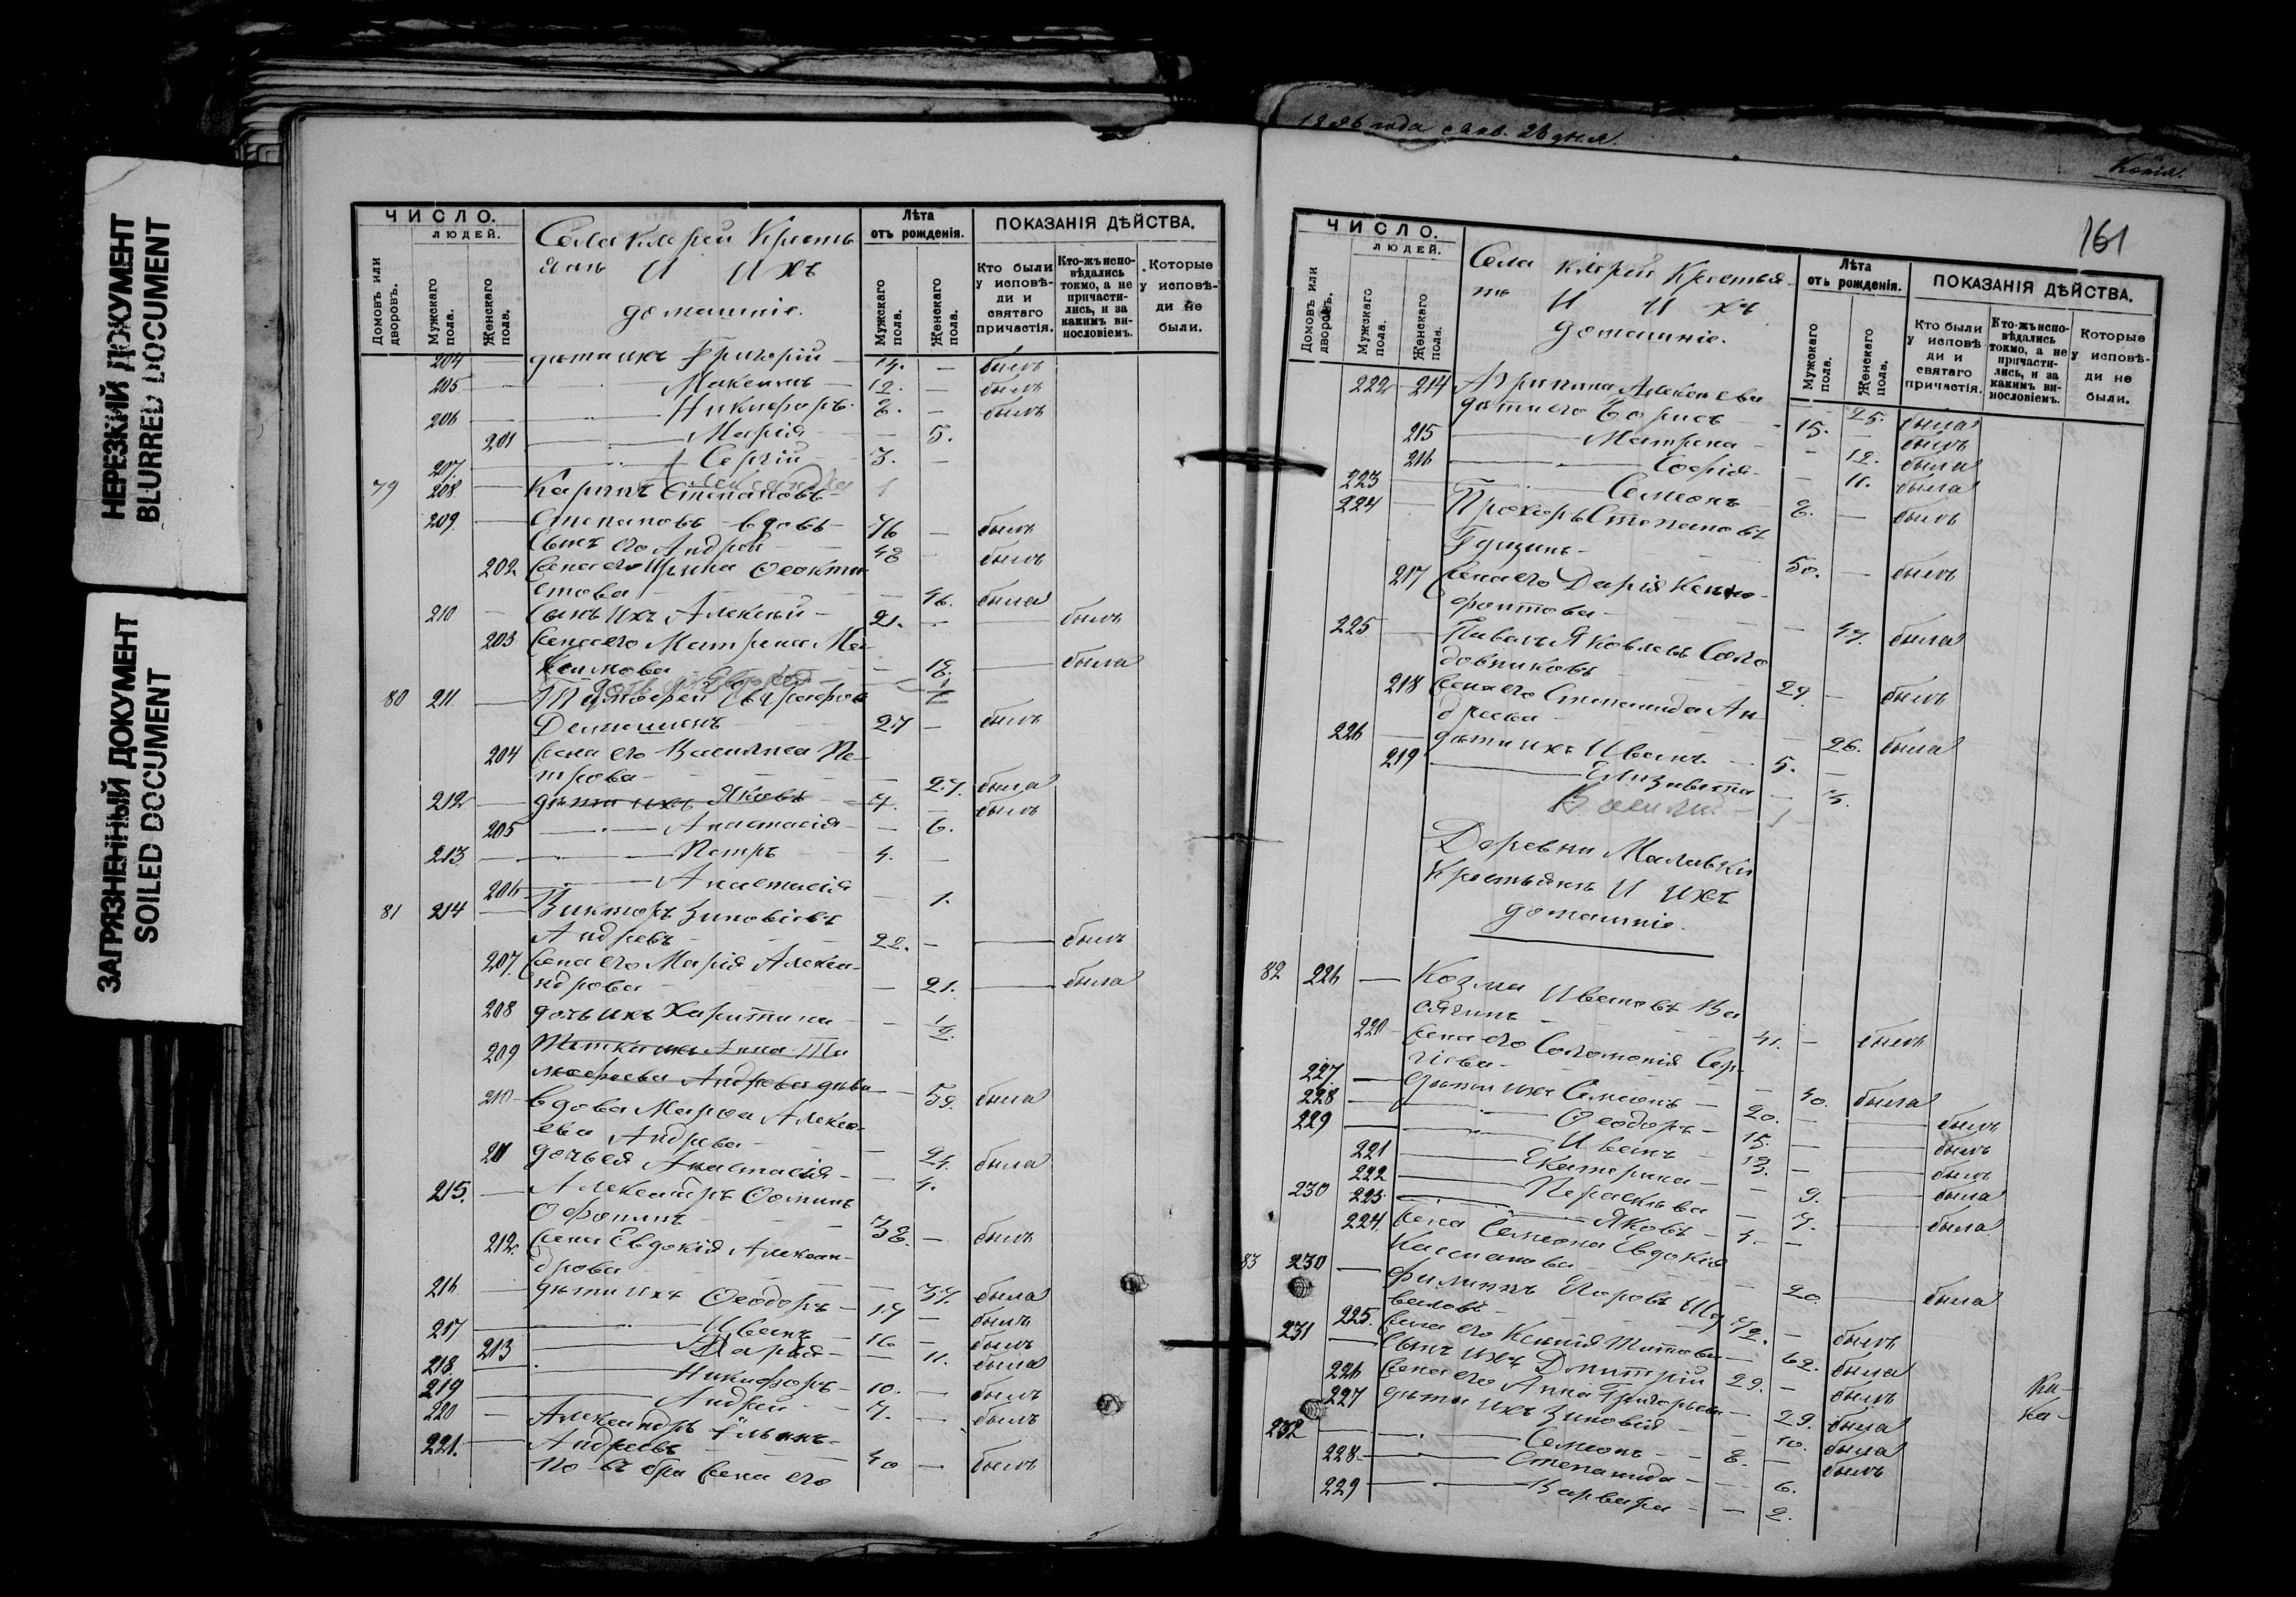 НЕРЕЗКИЙ ДОКУМЕНТ
BLURRED DOCUMENT
ЗАГРЯЗНЕННЫЙ ДОКУМЕНТ
SOILED DOCUMENT
ЧИСЛО.
ЛЮДЕЙ.
Домовъ или дворовъ.
Мужскаго пола.
Женскаго пола.
Села Крестьянъ И Ихъ домашніе.
Лѣта отъ рожденія.
Мужскаго пола.
Женскаго пола.
ПОКАЗАНІЯ ДѢЙСТВА.
Кто были у исповѣди и святаго причастія.
Кто-жъ исповѣдались токмо, а не причастились, и за какимъ винословіемъ.
Которые у исповѣди не были.
204 — дѣти ихъ Григорій — 14. — былъ
205 — Максимъ — 12. — былъ
206 — Никифоръ — 8. — былъ
201 — Марія — 5.
207. — Сергій — 3. —
Александра 1
79 208. — Карпъ Степановъ
209. — Степановъ вдовъ — 76 — былъ
Сынъ его Андрей 48 — былъ
202 Жена его Ирина Ѳеоктистова — 46. была
210 — Сынъ ихъ Алексѣй — 21. — былъ
203 Жена его Матрона Максимова — 18. — была
80 211 — Тимоѳей
27 — былъ
204 Жена его Василиса Петрова — 27. была
212 — дѣти ихъ Яковъ — 7. — былъ
205 — Анастасія — 6.
213 — Петръ 4. —
206 — Анастасія — 1.
81 214 — Викторъ Зиновіевъ Андреевъ 22. — былъ
207. Жена его Марія Александрова — 21. — была
208 дочь ихъ Харитина
209 Тетка ихъ Анна Тимоѳеева Андреева дѣва — 59. была
210 Вдова Марѳа Алексѣева Андреева — 24. была
211 дочь ея Анастасія — 4.
215. — Александръ Ѳоминъ
38. — былъ
212. Жена Евдокія Александрова — 37. была
216 — дѣти ихъ Ѳеодоръ — 17 — былъ
217 — Иванъ — 16 — былъ
213 — Дарія — 11. была
218 — Никифоръ — 10. — былъ
219 — Андрей — 7. — былъ
220 — Александръ
221. — Андреевъ 40 — былъ
По 2-й бра Жена его
1896 года янв. 26 дня.
Копія.
161
ЧИСЛО.
ЛЮДЕЙ.
Домовъ или дворовъ.
Мужскаго пола.
Женскаго пола.
Села Крестьянъ И Ихъ домашніе.
Лѣта отъ рожденія.
Мужскаго пола.
Женскаго пола.
ПОКАЗАНІЯ ДѢЙСТВА.
Кто были у исповѣди и святаго причастія.
Кто-жъ исповѣдались токмо, а не причастились, и за какимъ винословіемъ.
Которые у исповѣди не были.
222 214 Агрипина Алексѣева — 25. была
дѣти его Борисъ 15. — былъ
215 — Матрона — 12. была
216 — Софія — 11. была
223 — Семеонъ 8. — былъ
224 — Прохоръ Степановъ
50. — былъ
217 Жена его Дарія Ксенофонтова — 47. была
225 — Павелъ Яковлевъ Солодовниковъ 29. — былъ
218 Жена его Степанида Андреева — 26. была
226 — дѣти ихъ Иванъ 5. —
219 — Елизавета — 3.
Василій 1
Деревни Малавки
Крестьянъ И ихъ
домашніе.
82 226 — Козма Ивановъ
41. — былъ
220 Жена его Соломонія Сергіева — 40. была
227 — дѣти ихъ Семеонъ — 20. — былъ
228 — Ѳеодоръ — 15. — былъ
229 — Иванъ — 13. — былъ
221 — Екатерина — 9. — была
222 — Параскева — 7. — была
230 223 — Яковъ — 4. —
224 Жена Семеона Евдокія Кассианова — 20. — была
83 230 — Филиппъ Егоровъ
72. — былъ
225. Жена его Ксенія Титова — 62. была
231 — Сынъ ихъ Димитрій 29. — былъ
226 Жена его Анна Григорьева — 29. была
227 дѣти ихъ Зиновія — 10. была
232 — Семеонъ — 8. — былъ
228 — Степанида — 6.
229 — Варвара — 2.